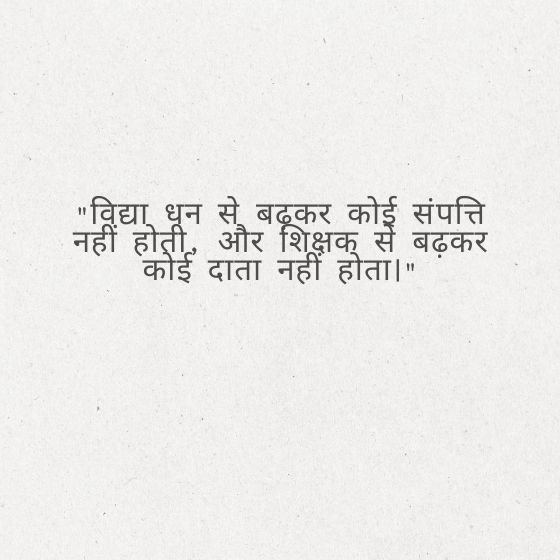 "विद्या धन से बढ़कर कोई संपत्ति
नहीं होती, और शिक्षक से बढ़कर
कोई दाता नहीं होता|"